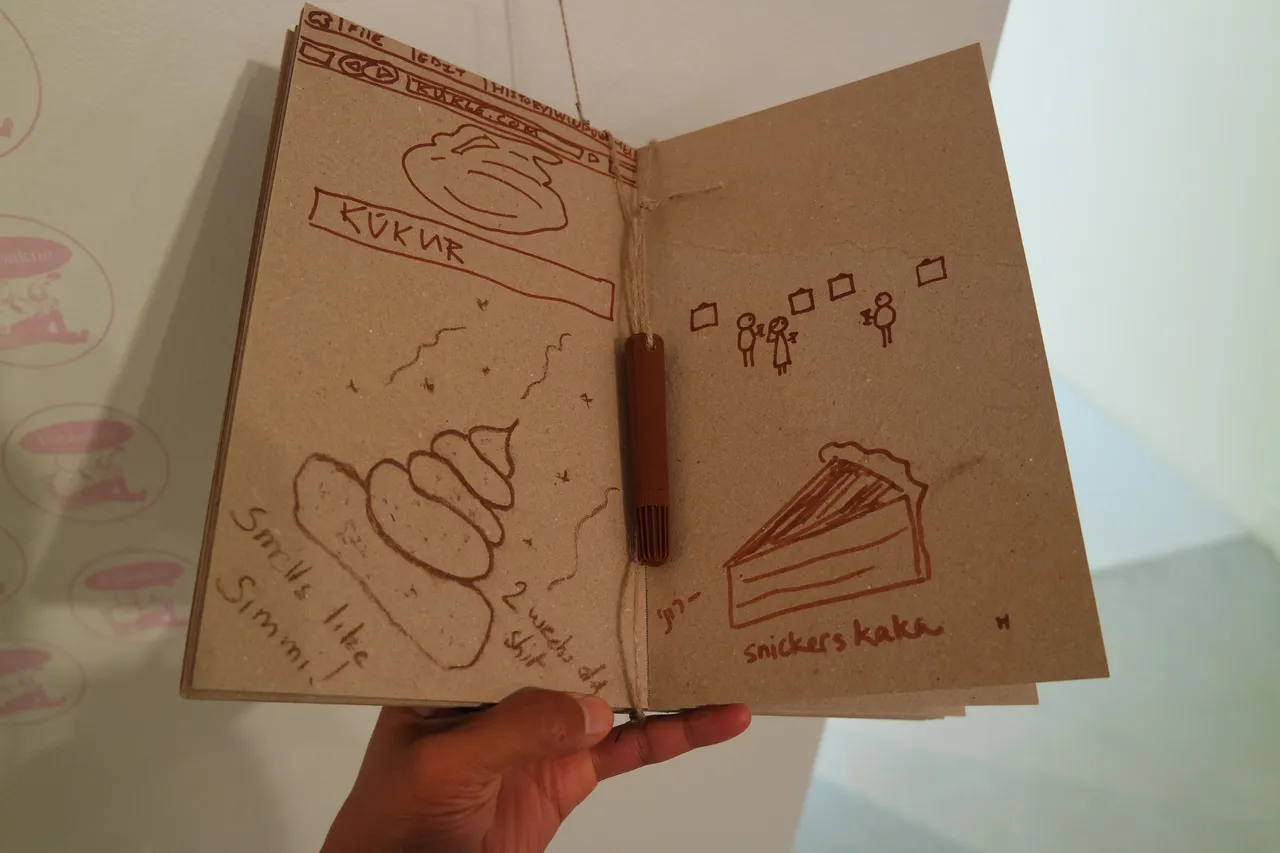 FILE | EDIT | HISTORY | WINDOW
KUKLE.COM
KÚKUR
Smells like
Simmi!
2 weeks old
shit
snickers kaka
H